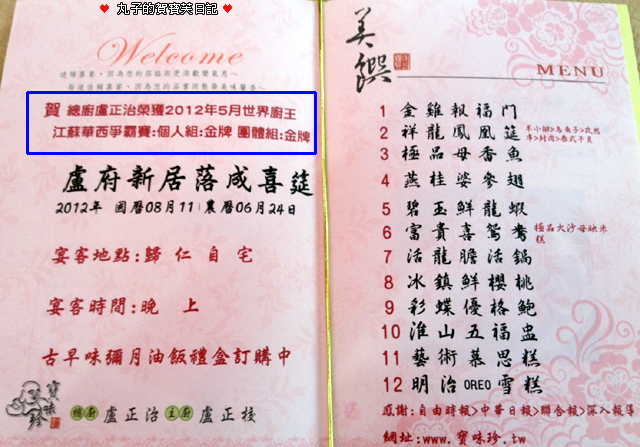 ♥ 丸子的賀寶芙日記 ♥
Welcome
賀 總廚盧正治榮獲2012年5月世界廚王
江蘇華西爭霸賽:個人組:金牌 團體組:金牌
盧府新居落成喜筵
2012年 國曆08月11 農曆06月24日
宴客地點:歸仁自宅
宴客時間:晚 上
古早味彌月油飯禮盒訂購中
寶味珍
總廚 盧正治 主廚 盧正校
美饌
MENU
1 金雞報福門
2 祥龍鳳凰筵
3 極品母香魚
4 燕桂婆參翅
5 碧玉鮮龍蝦
6 富貴喜鴛鴦 極品大沙母蚫米
糕
7 活龍膽活鍋
8 冰鎮鮮櫻桃
9 彩蝶優格鮑
10 淮山五福盅
11 藝術慕思糕
12 明治OREO雪糕
感謝:自由時報>中華日報>聯合報>深入報導
網址:www.寶味珍.tw